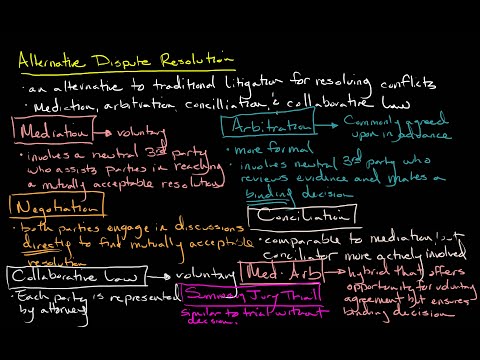 Alternative Dispute Resolution
• an alternative to traditional litigation for resolving conflicts
• Mediation, arbitration, concilliation, & collaborative law
Mediation → voluntary
• involves a neutral 3rd party
who assists parties in reaching
a mutually acceptable resolution
Arbitration → Commonly agreed
upon in advance
• more formal
• involves neutral 3rd party who
reviews evidence and makes a
binding decision
Negotiation
• both parties engage in discussions
directly to find mutually acceptable
resolution
Conciliation
• comparable to mediation, but
conciliator more actively involved
Collaborative Law → voluntary
• Each party is represented
by attorney
Med-Arb → hybrid that offers
opportunity for voluntary
agreement but ensures
binding decision
Summary Jury Trial
similar to trial without
decision.